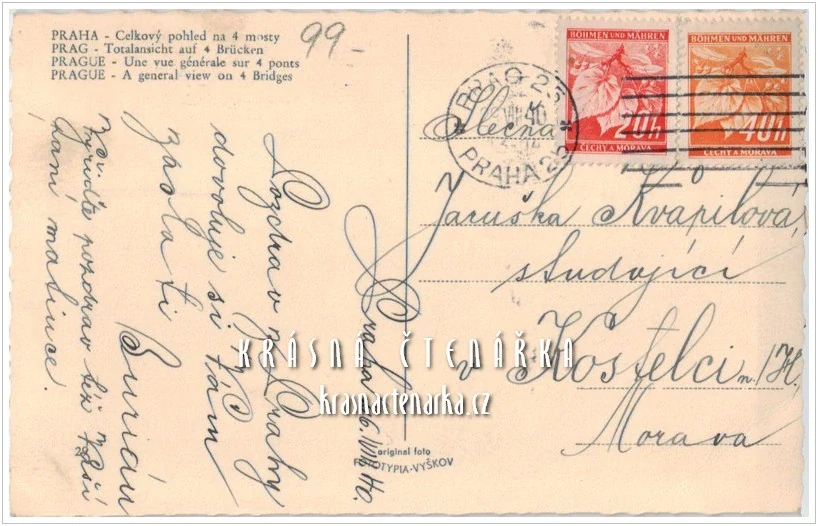 PRAHA - Celkový pohled na 4 mosty
PRAG - Totalansicht auf 4 Brücken
PRAGUE - Une vue générale sur 4 ponts
PRAGUE - A general view on 4 Bridges
99-
BÖHMEN UND MÄHREN
20h
ČECHY A MORAVA
BÖHMEN UND MÄHREN
40h
ČECHY A MORAVA
PRAG 25
VIII 40
PRAHA 25
Slečna
Jaruška Kvapilová,
studující
v Kostelci n./H.
Morava
Praha 6/VIII 40.
Pozdrav z Prahy
dovoluje si Vám
zaslati
Burián
vyřiďte pozdrav též Vaší
paní matince.
original foto
FOTOTYPIA-VYŠKOV
KRÁSNÁ ČTENÁŘKA
krasnactenarka.cz